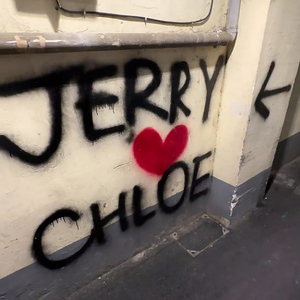 JERRY
CHLOE